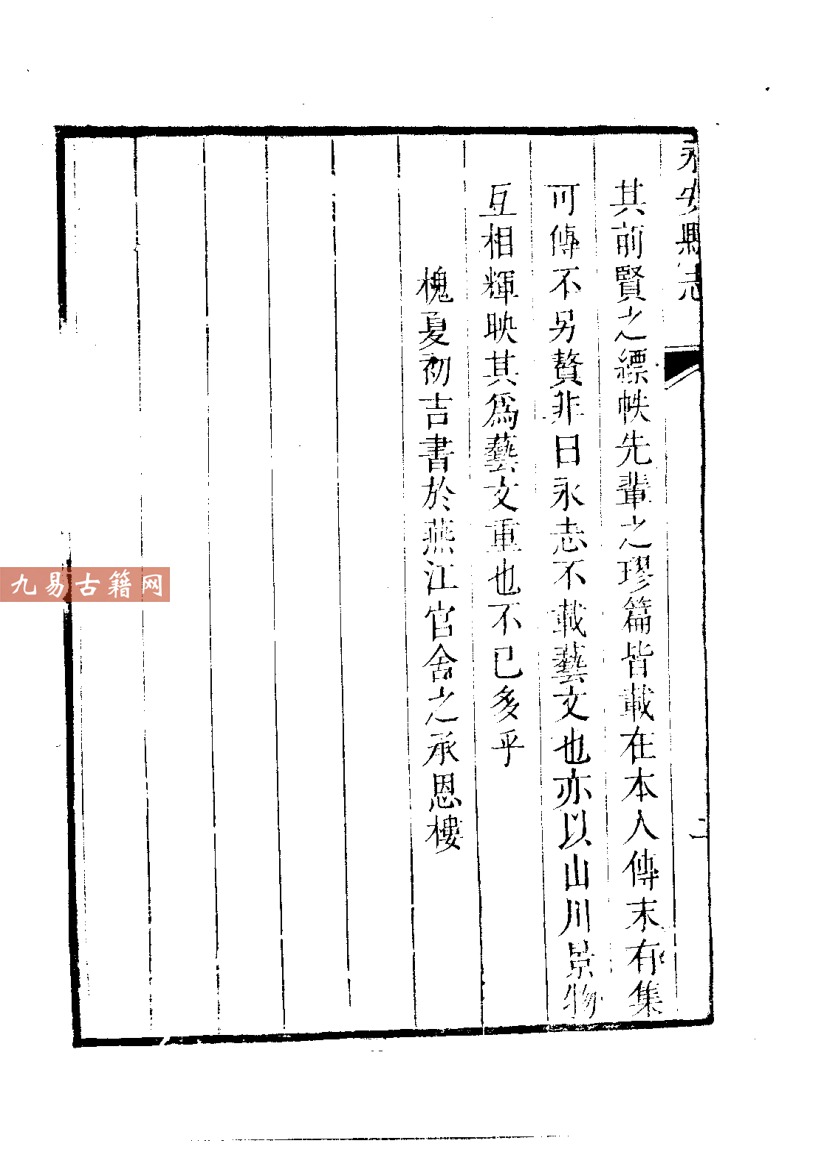 永安縣志
二
其前賢之縹帙先輩之璆篇皆載在本人傳末有集
可傳不另贅非曰永志不載藝文也亦以山川景物
互相輝映其爲藝文重也不已多乎
槐夏初吉書於燕江官舍之承恩樓
九易古籍网